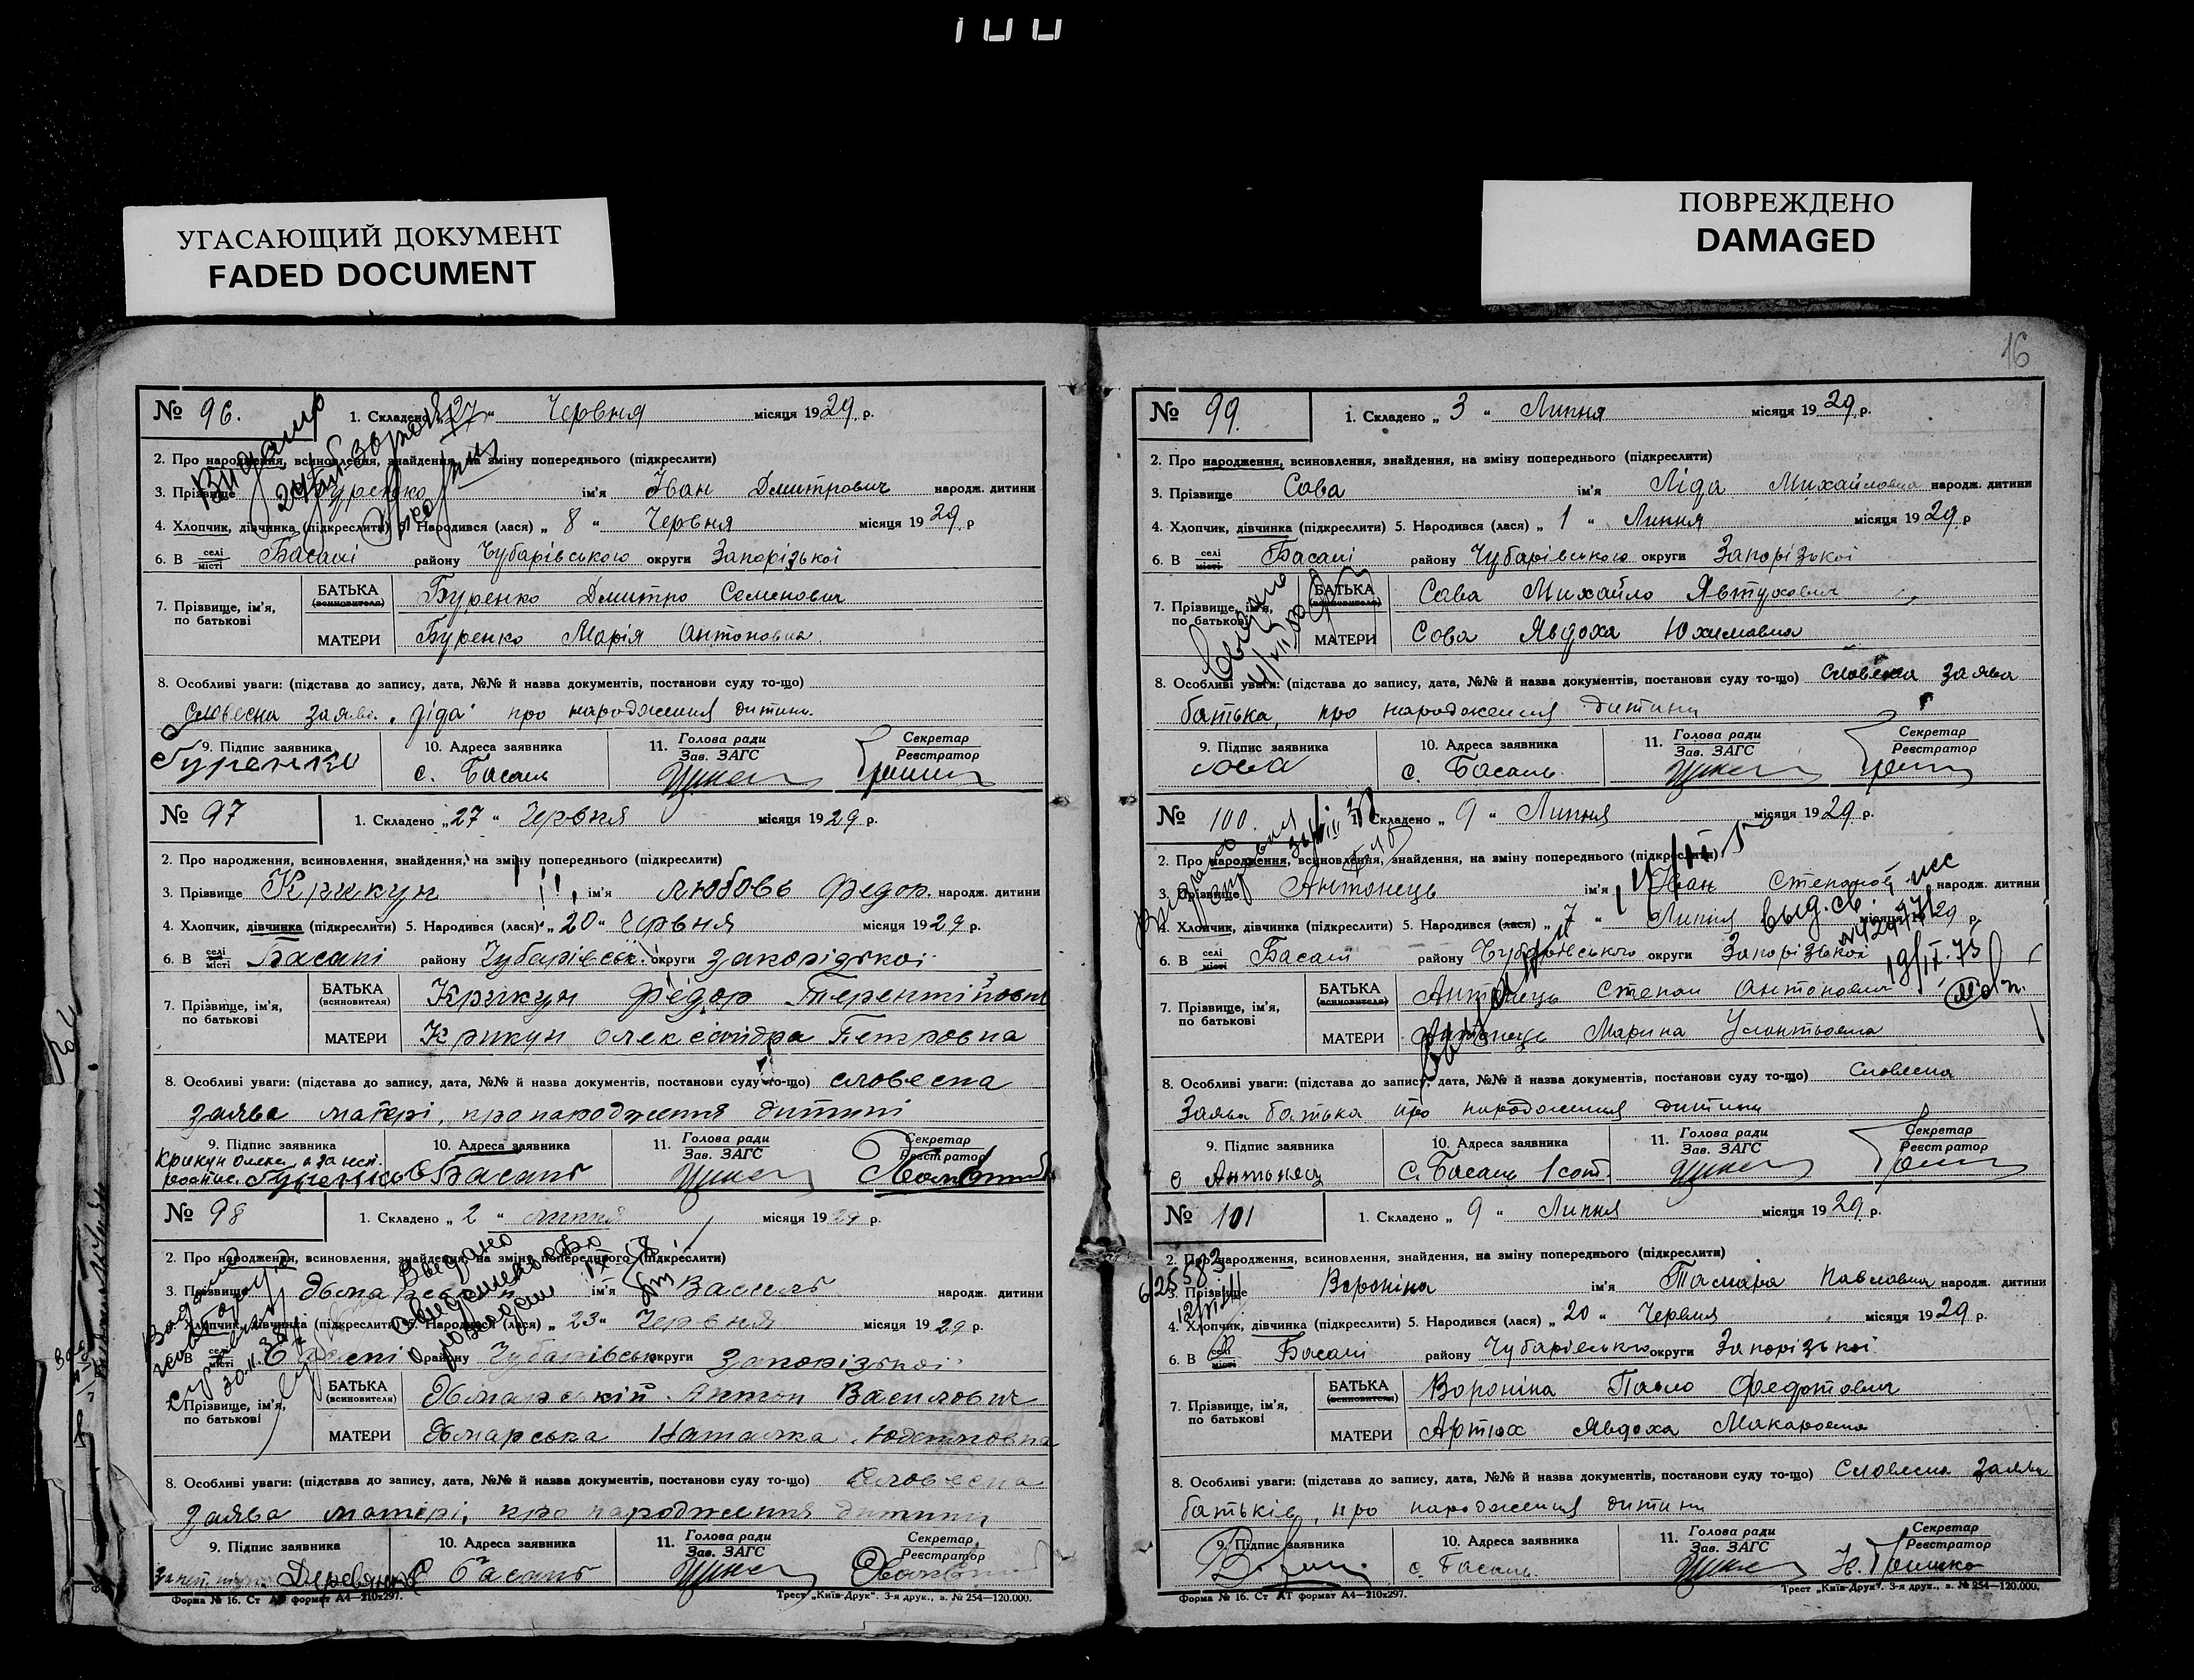 100
УГАСАЮЩИЙ ДОКУМЕНТ
FADED DOCUMENT
ПОВРЕЖДЕНО
DAMAGED
16
№ 96. 1. Складено „27“ Червня місяця 1929 р.
2. Про народження, всиновлення, знайдення, на зміну попереднього (підкреслити)
3. Прізвище Буренко ім'я Іван Дмитрович народж. дитини
4. Хлопчик, дівчинка (підкреслити) 5. Народився (лася) „8“ Червня місяця 1929 р
6. В селі місті Басані району Чубарівського округи Запорізької
7. Прізвище, ім'я, по батькові
БАТЬКА (всиновителя) Буренко Дмитро Семенович
МАТЕРИ Буренко Марія Антоновна.
8. Особливі уваги: (підстава до запису, дата, №№ й назва документів, постанови суду то-що)
Словесна заява „діда“ про народження дитини.
9. Підпис заявника 10. Адреса заявника 11. Голова ради Зав. ЗАГС Секретар Реєстратор
Буренко с. Басань
Видано
№ 97 1. Складено „27“ Червня місяця 1929 р.
2. Про народження, всиновлення, знайдення, на зміну попереднього (підкреслити)
3. Прізвище Крикун ім'я Любовь Федор. народж. дитини
4. Хлопчик, дівчинка (підкреслити) 5. Народився (лася) „20“ Червня місяця 1929 р.
6. В селі місті Басані району Чубарівськ. округи Запорізької
7. Прізвище, ім'я, по батькові
БАТЬКА (всиновителя) Крикун Федор
МАТЕРИ Крикун Олександра Петровна
8. Особливі уваги: (підстава до запису, дата, №№ й назва документів, постанови суду то-що) словесна
заява матері, про народження дитині
9. Підпис заявника 10. Адреса заявника 11. Голова ради Зав. ЗАГС Секретар Реєстратор
Крикун Басань
№ 98 1. Складено „2“ липня місяця 1929 р.
2. Про народження, всиновлення, знайдення, на зміну попереднього (підкреслити)
3. Прізвище ім'я Василь народж. дитини
4. Хлопчик, дівчинка (підкреслити) 5. Народився (лася) „23“ Червня місяця 1929 р.
6. В селі місті Басані району Чубарівськ округи Запорізької
7. Прізвище, ім'я, по батькові
БАТЬКА (всиновителя) Антон Василович
МАТЕРИ Наталка
8. Особливі уваги: (підстава до запису, дата, №№ й назва документів, постанови суду то-що) Словесна
заява матері, про народження дитини
9. Підпис заявника 10. Адреса заявника 11. Голова ради Зав. ЗАГС Секретар Реєстратор
Басань
Форма № 16. Ст АТ формат А4—210х297. Трест „Київ-Друк“. 3-я друк., з. № 254—120.000.
№ 99. 1. Складено „3“ Липня місяця 1929 р.
2. Про народження, всиновлення, знайдення, на зміну попереднього (підкреслити)
3. Прізвище Сова ім'я Ліда Михайловна народж. дитини
4. Хлопчик, дівчинка (підкреслити) 5. Народився (лася) „1“ Липня місяця 1929 р
6. В селі місті Басані району Чубарівського округи Запорізької
7. Прізвище, ім'я, по батькові
БАТЬКА (всиновителя) Сова Михайло Явтухович
МАТЕРИ Сова Явдоха Юхимовна
8. Особливі уваги: (підстава до запису, дата, №№ й назва документів, постанови суду то-що) Словесна заява
батька, про народження дитини
9. Підпис заявника 10. Адреса заявника 11. Голова ради Зав. ЗАГС Секретар Реєстратор
Сова с. Басань.
№ 100. 1. Складено „9“ Липня місяця 1929 р.
2. Про народження, всиновлення, знайдення, на зміну попереднього (підкреслити)
3. Прізвище Антонець ім'я Іван Степанов народж. дитини
4. Хлопчик, дівчинка (підкреслити) 5. Народився (лася) „7“ Липня місяця 1929 р.
6. В селі місті Басані району Чубарівського округи Запорізької
7. Прізвище, ім'я, по батькові
БАТЬКА (всиновителя) Антонець Степан Антонович
МАТЕРИ Антонець Марина
8. Особливі уваги: (підстава до запису, дата, №№ й назва документів, постанови суду то-що) Словесна
Заява батька про народження дитини
9. Підпис заявника 10. Адреса заявника 11. Голова ради Зав. ЗАГС Секретар Реєстратор
Антонец с. Басань 1 сот.
№ 101 1. Складено „9“ Липня місяця 1929 р.
2. Про народження, всиновлення, знайдення, на зміну попереднього (підкреслити)
3. Прізвище Вороніна ім'я Тамара Павловна народж. дитини
4. Хлопчик, дівчинка (підкреслити) 5. Народився (лася) „20“ Червня місяця 1929 р.
6. В селі місті Басані району Чубарівського округи Запорізької
7. Прізвище, ім'я, по батькові
БАТЬКА (всиновителя) Вороніна Павло Федотович
МАТЕРИ Артюх Явдоха Макаровна
8. Особливі уваги: (підстава до запису, дата, №№ й назва документів, постанови суду то-що) Словесна заява
батьків, про народження дитини
9. Підпис заявника 10. Адреса заявника 11. Голова ради Зав. ЗАГС Секретар Реєстратор
с. Басань
Форма № 16. Ст АТ формат А4—210х297. Трест „Київ-Друк“. 3-я друк., з. № 254—120.000.